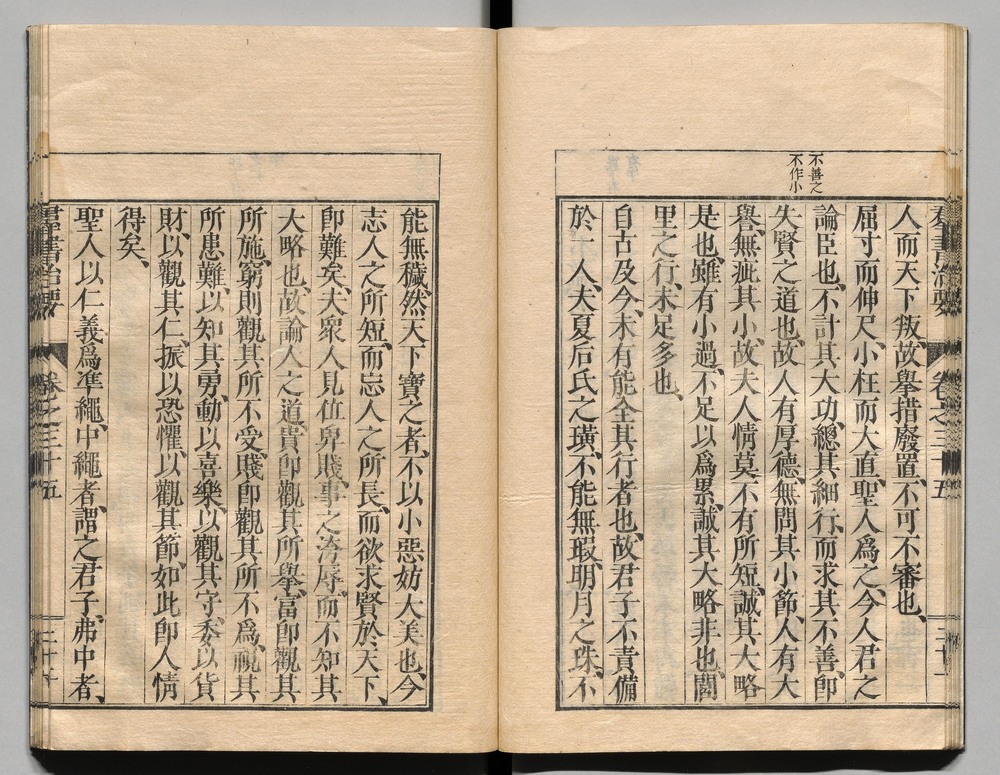 羣書治要 卷之三十五
不善之
不作小
人而天下叛、故舉措廢置、不可不審也、
屈寸而伸尺、小枉而大直、聖人爲之、今人君之
論臣也、不計其大功、總其細行、而求其不善、卽
失賢之道也、故人有厚德、無問其小節、人有大
譽、無疵其小、故夫人情莫不有所短、誠其大略
是也、雖有小過、不足以爲累、誠其大略非也、閭
里之行、未足多也、
自古及今、未有能全其行者也、故君子不責備
於一人、夫夏后氏之璜、不能無瑕、明月之珠、不
能無穢、然天下寶之者、不以小惡妨大美也、今
志人之所短、而忘人之所長、而欲求賢於天下、
卽難矣、夫衆人見位卑賤、事之洿辱、而不知其
大略也、故論人之道、貴卽觀其所擧、富卽觀其
所施、窮則觀其所不受、賤卽觀其所不爲、視其
所患難、以知其勇、動以喜樂、以觀其守、委以貨
財、以觀其仁、振以恐懼、以觀其節、如此卽人情
得矣、
聖人以仁義爲準繩、中繩者、謂之君子、弗中者、
羣書治要 卷之三十五